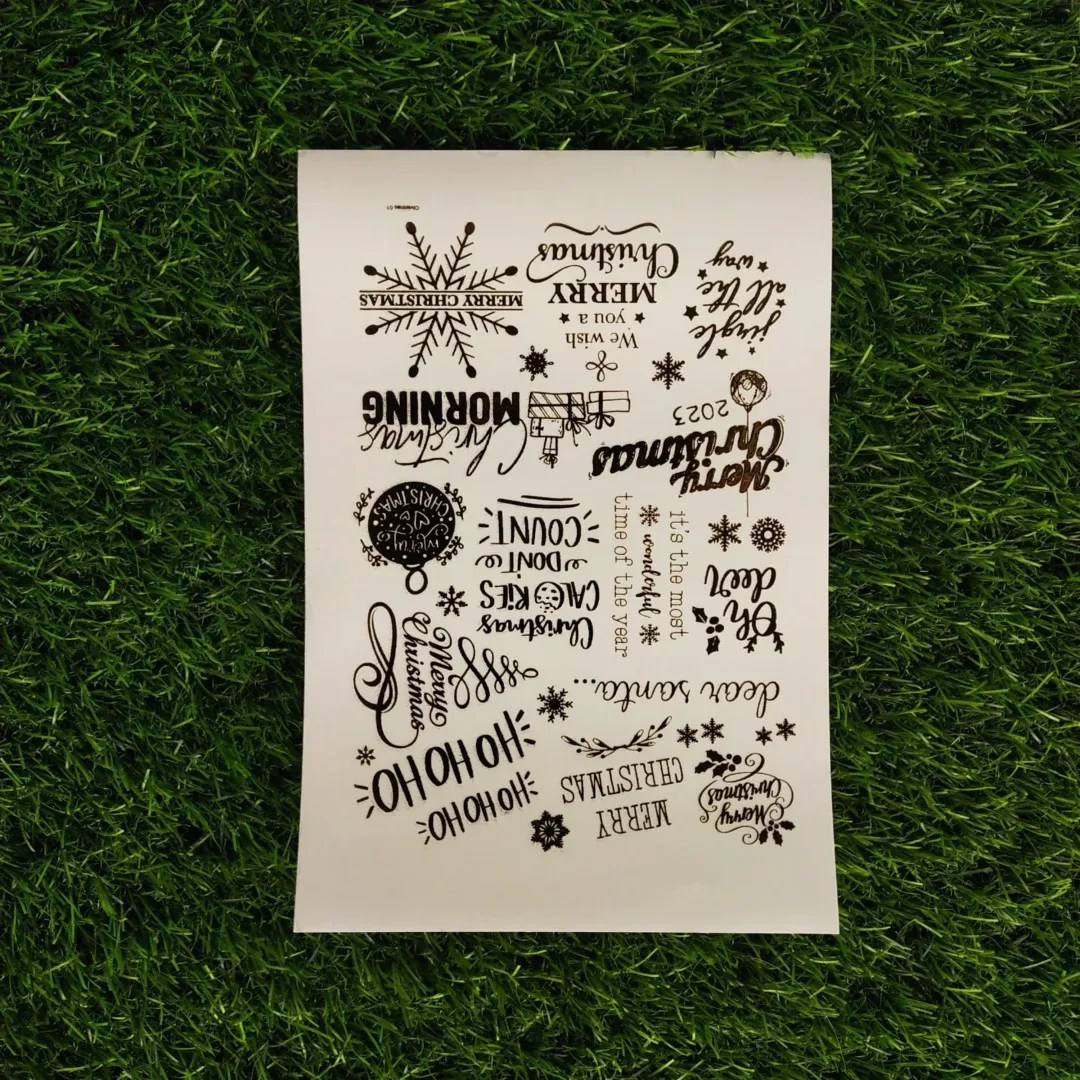 Merry
Christmas
MERRY
CHRISTMAS
HO HO HO
HO HO HO
dear santa...
Merry
Christmas
Oh
deer
it's the most
wonderful
time of the year
Christmas
CALORiES
DON'T
COUNT
Merry
CHRISTMAS
Merry
Christmas
2023
Christmas
MORNING
jingle
all the
way
We wish
you a
MERRY
Christmas
MERRY CHRISTMAS
Christmas 01